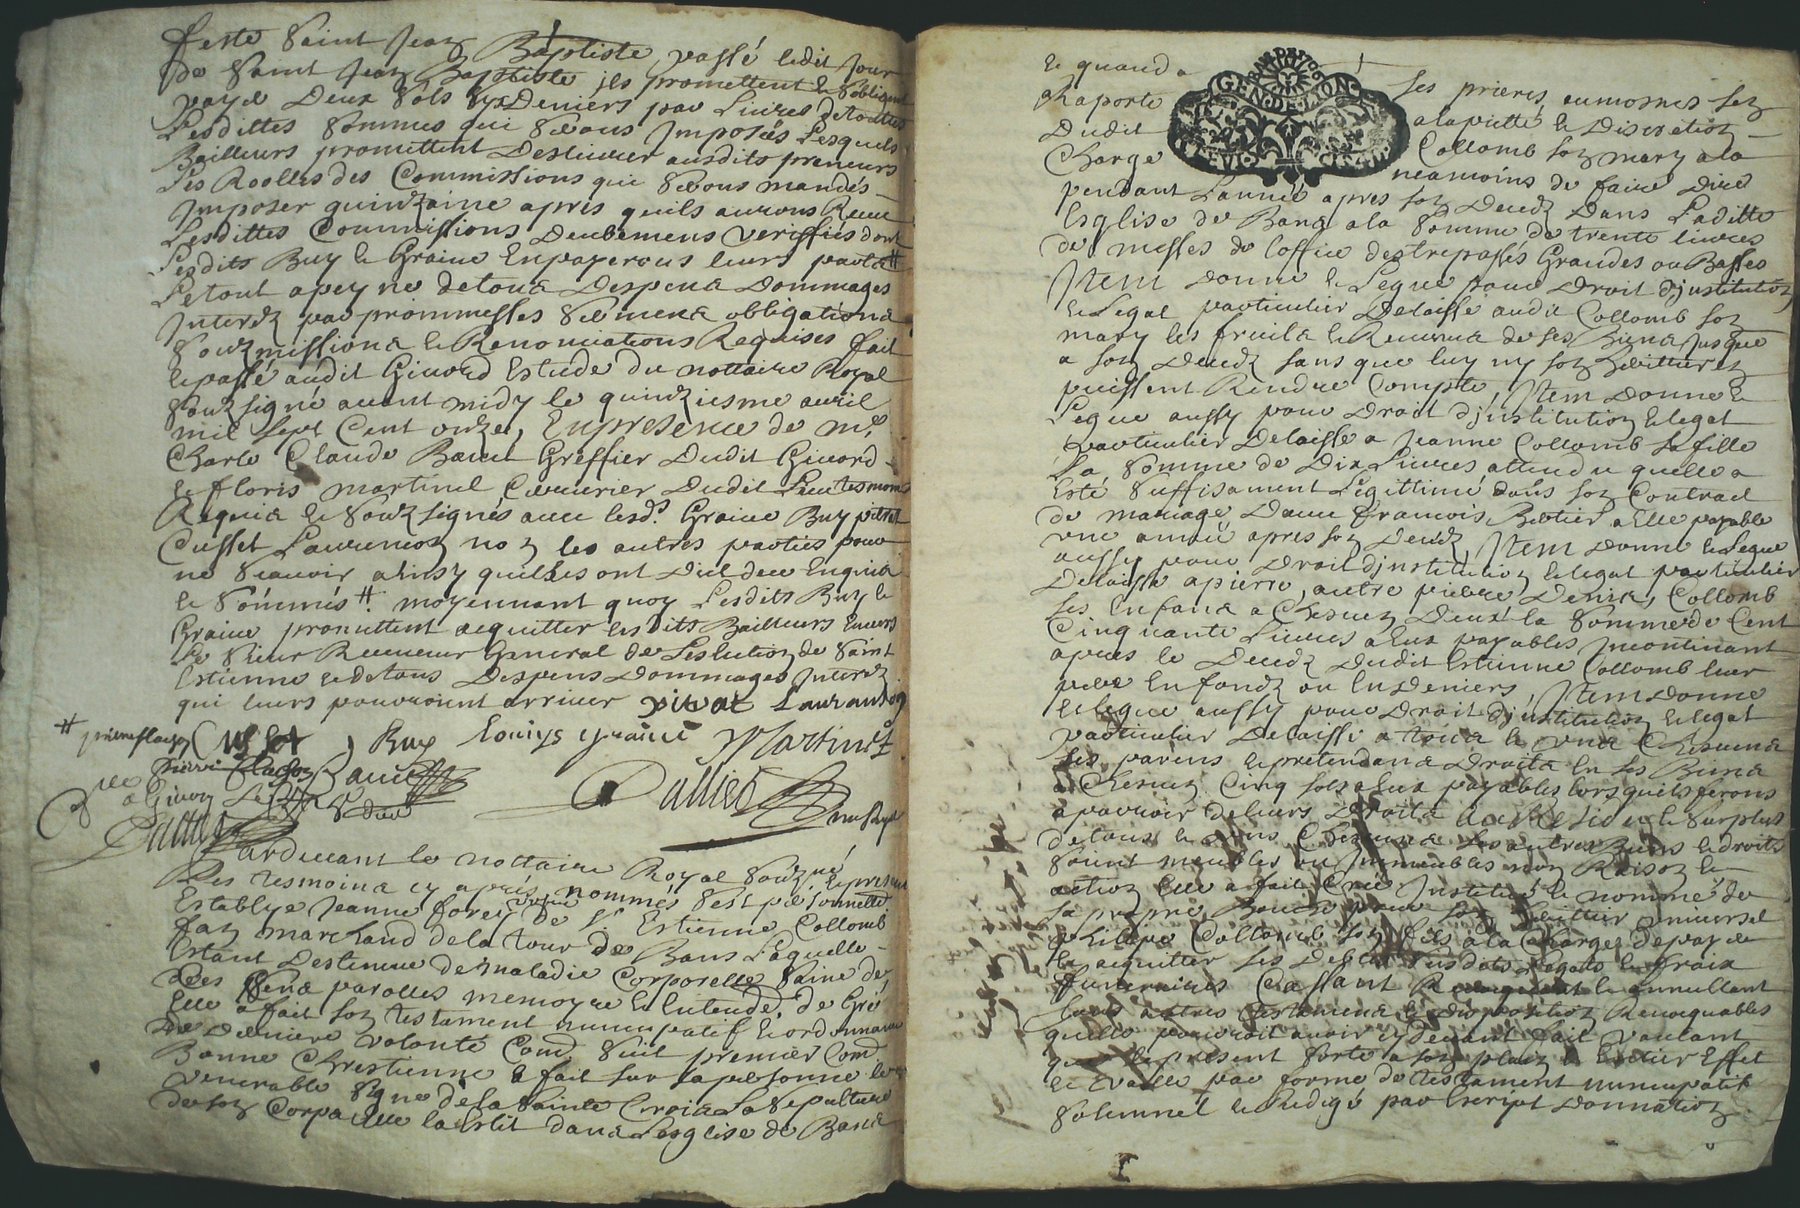 feste Saint Jean Baptiste, passé ledit Jour
de Saint Jean Baptiste ils promettent & sobligent
payer Deux sols six Deniers par Livres de touttes
Lesdittes sommes qui serons Imposées Lesquels
Bailleurs promettent Deslivrer ausdits preneurs
Les Roolles des Commissions qui serons mandés
Imposer quinzaine apres quils aurons Receu
Lesdittes Commissions Deubemens veriffiés dont
Lesdits Buy & Graine En payerons leurs parts #
Le tout a peyne de tous Despens Dommages
Interetz par prommesses sermens obligations
Soubzmissions & Renonciations Requises fait
& passé audit Givord Estude du nottaire Royal
soubzsigné avant midy le quinziesme avril
mil sept Cent onze, En presence de me
Charle Claude Bacut Greffier Dudit Givord
& floris martinel Cirurier Dudit Lieu tesmoins
Requis & soubzsignés avec lesds. Graine Buy
Cusset Laurencon non les autres parties pour
ne scavoir ainsy quelles ont Dict de ce Enquis
& sommés #. moyennant quoy Lesdits Buy &
Graine promettent acquitter lesdits Bailleurs Envers
Le sieur Receveur General de Leslection de Saint
Estienne & de tous Despens Dommages Interetz
qui leurs pourroient arriver
# pierre flachon Cusset Buy Louiys graine Martinel
Pierre flachon Bacut
a Givor
Pallier
Pardevant le nottaire Royal soubzné
& Les tesmoins cy après nommés s'est personnelle
Establye Jeanne forey vefve de Sr Estienne Collomb
marchand de la tour de Bans Laquelle
Estant Destenue de maladie Corporelle Saine de
ses sens parolles memoyre & Entende. de Gré
Elle a fait son testament nuncupatif & ordonnance
de derniere volonté Comme suit premier Comme
Bonne Chrestienne a fait sur sa personne le
venerable signe de la sainte Croix La sepulture
de son Corps Elle la eslit dans Lesglise de Bans
& quand a Ses prieres, aumosnes sen
Raporte a la pietté & Discretion
Dudit Collomb son mary a la
Charge neamoins de faire Dire
pendant Lannée apres son Deceds Dans Laditte
Esglise de Bans a la somme de trente livres
de messes de Loffice des trepassés Grandes ou Basses
Item donne & Legue pour Droit d'institution
& Legat particulier Delaissé audit Collomb son
mary les fruits & Revenus de ses Biens Jusque
a son Deceds sans que luy ny son heritier en
puissent Rendre Compte, Item Donne &
Legue aussy pour Droit d'institution & legat
particulier Delaissé a Jeanne Collomb sa fille
La somme de Dix Livres attendu quelle a
Esté suffisament Legittimé dans son Contract
de mariage Davec francois Bertier a Elle payable
une année apres son Deceds, Item Donne & Legue
aussy pour Droit d'institution & legat particulier
Delaissé a pierre, autre pierre, Denis, Collomb
ses Enfans a Chescun Deux la somme de Cent
Cinquante Livres a Eux payables Incontinant
apres le Deceds dudit Estienne Collomb leur
pere En fondz ou En Deniers, Item Donne
& legue aussy pour Droit d'institution & legat
particulier Delaissé a tous & uns Chescuns
ses parens & pretendans Droits En ses Biens
a Chescun Cinq sols a Eux payables lorsquils ferons
aparoir de leurs Droits & le surplus
de tous & uns Chescuns ses autres Biens & droits
soient meubles ou Immeubles noms Raisons &
action Elle a fait Cree Institué & nommé de
sa propre Bouche pour son heritier universel
Collomb son fils a la Charge de payer
& acquitter ses Debtes susdits Legats & fraix
funeraires Cassant & annullant
tous autres testamens & disposition Revocquables
quelle pourroit avoir cy devant fait voulant
que le present sorte a son plain & Entier Effet
& vaille par forme de testament nuncupatif
solemnel & Redigé par Escript Donnation